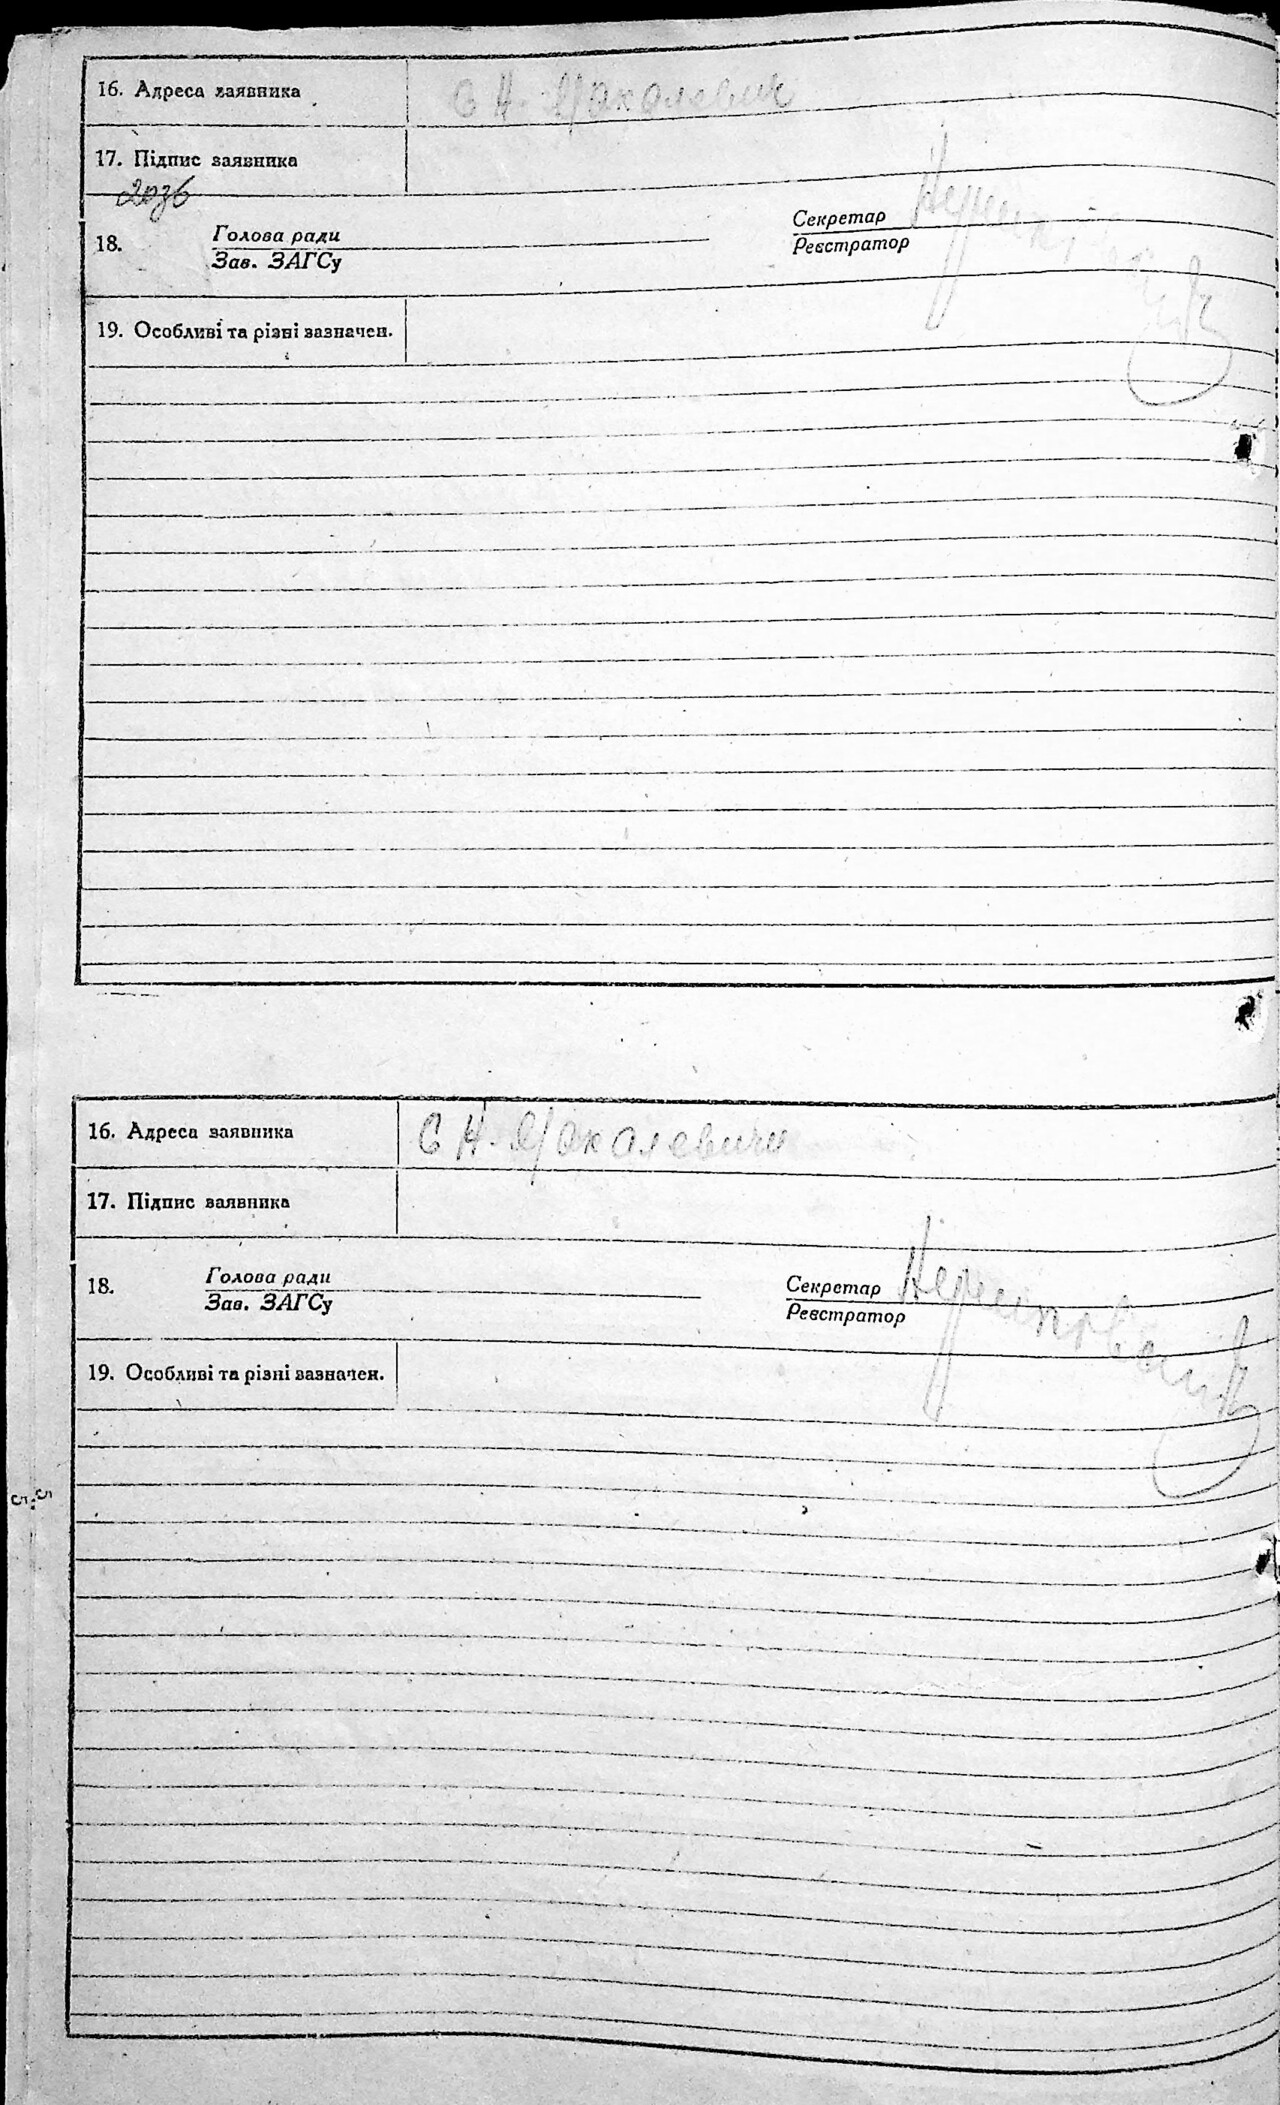 16. Адреса заявника
с Н.
17. Підпис заявника
18.
Голова ради
Зав. ЗАГСу
Секретар
Реєстратор
19. Особливі та різні зазначен.
16. Адреса заявника
с Н.
17. Підпис заявника
18.
Голова ради
Зав. ЗАГСу
Секретар
Реєстратор
19. Особливі та різні зазначен.